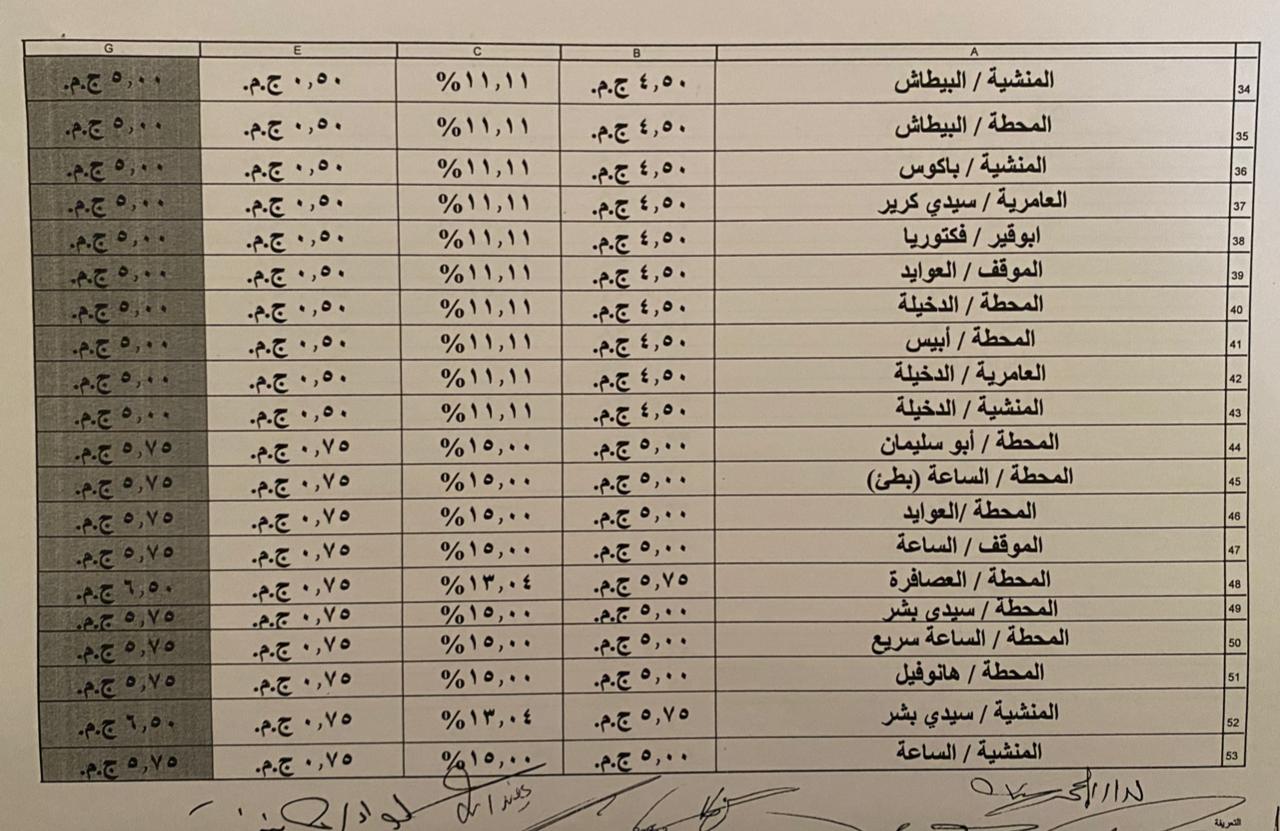 A B C E G
34 المنشية / البيطاش ٤,٥٠ ج.م. ١١,١١% ٠,٥٠ ج.م. ٥,٠٠ ج.م.
35 المحطة / البيطاش ٤,٥٠ ج.م. ١١,١١% ٠,٥٠ ج.م. ٥,٠٠ ج.م.
36 المنشية / باكوس ٤,٥٠ ج.م. ١١,١١% ٠,٥٠ ج.م. ٥,٠٠ ج.م.
37 العامرية / سيدي كرير ٤,٥٠ ج.م. ١١,١١% ٠,٥٠ ج.م. ٥,٠٠ ج.م.
38 ابوقير / فكتوريا ٤,٥٠ ج.م. ١١,١١% ٠,٥٠ ج.م. ٥,٠٠ ج.م.
39 الموقف / العوايد ٤,٥٠ ج.م. ١١,١١% ٠,٥٠ ج.م. ٥,٠٠ ج.م.
40 المحطة / الدخيلة ٤,٥٠ ج.م. ١١,١١% ٠,٥٠ ج.م. ٥,٠٠ ج.م.
41 المحطة / أبيس ٤,٥٠ ج.م. ١١,١١% ٠,٥٠ ج.م. ٥,٠٠ ج.م.
42 العامرية / الدخيلة ٤,٥٠ ج.م. ١١,١١% ٠,٥٠ ج.م. ٥,٠٠ ج.م.
43 المنشية / الدخيلة ٤,٥٠ ج.م. ١١,١١% ٠,٥٠ ج.م. ٥,٠٠ ج.م.
44 المحطة / أبو سليمان ٥,٠٠ ج.م. ١٥,٠٠% ٠,٧٥ ج.م. ٥,٧٥ ج.م.
45 المحطة / الساعة (بطئ) ٥,٠٠ ج.م. ١٥,٠٠% ٠,٧٥ ج.م. ٥,٧٥ ج.م.
46 المحطة /العوايد ٥,٠٠ ج.م. ١٥,٠٠% ٠,٧٥ ج.م. ٥,٧٥ ج.م.
47 الموقف / الساعة ٥,٠٠ ج.م. ١٥,٠٠% ٠,٧٥ ج.م. ٥,٧٥ ج.م.
48 المحطة / العصافرة ٥,٧٥ ج.م. ١٣,٠٤% ٠,٧٥ ج.م. ٦,٥٠ ج.م.
49 المحطة / سيدي بشر ٥,٠٠ ج.م. ١٥,٠٠% ٠,٧٥ ج.م. ٥,٧٥ ج.م.
50 المحطة / الساعة سريع ٥,٠٠ ج.م. ١٥,٠٠% ٠,٧٥ ج.م. ٥,٧٥ ج.م.
51 المحطة / هانوفيل ٥,٠٠ ج.م. ١٥,٠٠% ٠,٧٥ ج.م. ٥,٧٥ ج.م.
52 المنشية / سيدي بشر ٥,٧٥ ج.م. ١٣,٠٤% ٠,٧٥ ج.م. ٦,٥٠ ج.م.
53 المنشية / الساعة ٥,٠٠ ج.م. ١٥,٠٠% ٠,٧٥ ج.م. ٥,٧٥ ج.م.
التعريفة